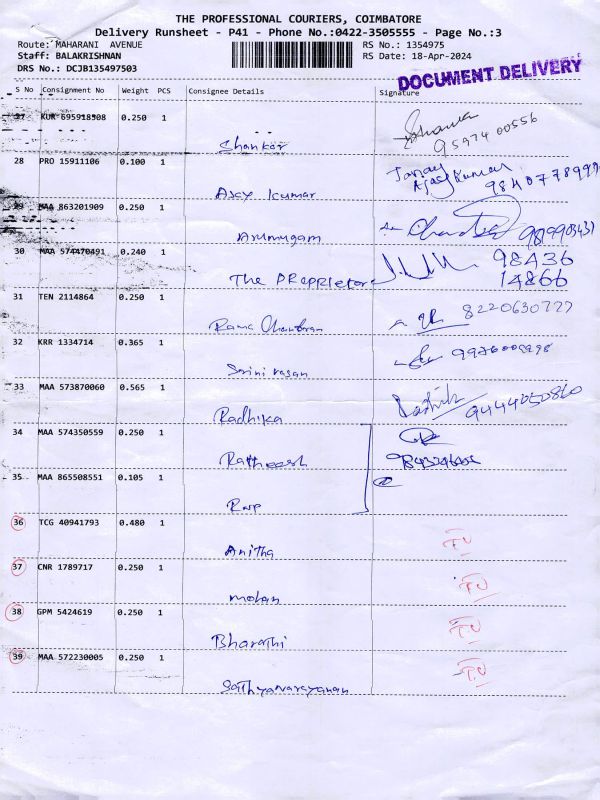 THE PROFESSIONAL COURIERS, COIMBATORE
Delivery Runsheet - P41 - Phone No.:0422-3505555 - Page No.:3
Route: MAHARANI AVENUE RS No.: 1354975
Staff: BALAKRISHNAN RS Date: 18-Apr-2024
DRS No.: DCJB135497503
DOCUMENT DELIVERY
S No Consignment No Weight PCS Consignee Details Signature
27 KUR 695918508 0.250 1
Shankar 95974 00556
28 PRO 15911106 0.100 1
Ajay Kumar
Ajay Kumar
29 MAA 863201909 0.250 1
Arumugam
30 MAA 574470491 0.240 1
The PRoprietor 98436
14866
31 TEN 2114864 0.250 1
Rama Chandran 8220630727
32 KRR 1334714 0.365 1
Srinivasan
33 MAA 573870060 0.565 1
Radhika 9444050860
34 MAA 574350559 0.250 1
Ratheesh
35 MAA 865508551 0.105 1
36 TCG 40941793 0.480 1
Anitha
37 CNR 1789717 0.250 1
mohan
38 GPM 5424619 0.250 1
Bharathi
39 MAA 572230005 0.250 1
Sathyanarayanan